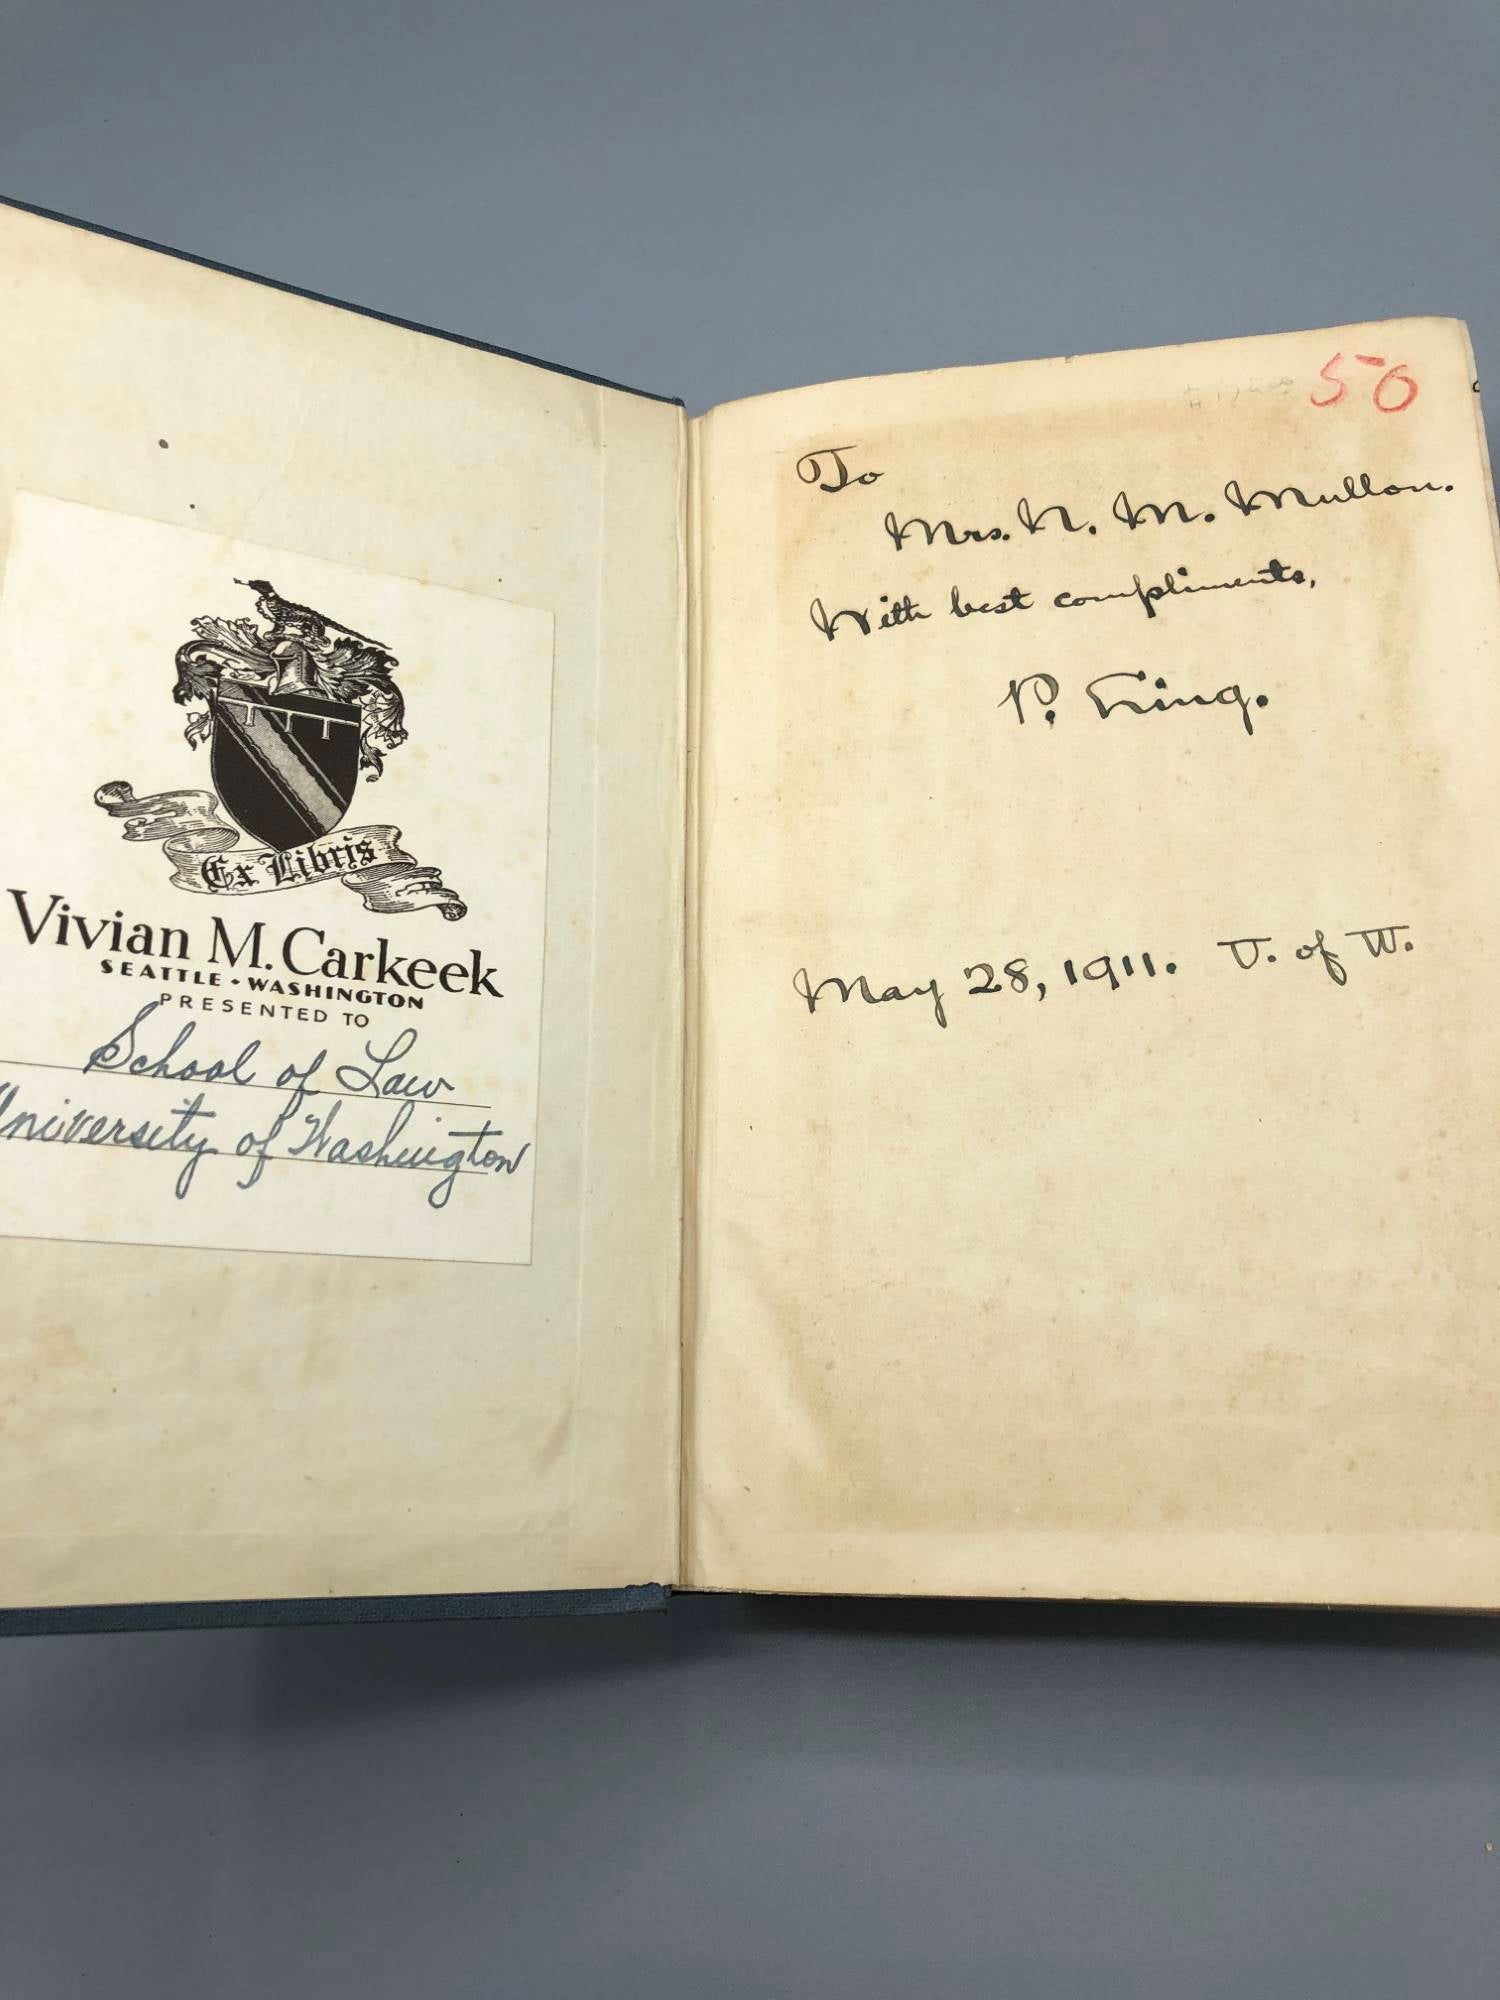 Ex Libris
Vivian M. Carkeek
SEATTLE · WASHINGTON
PRESENTED TO
School of Law
University of Washington
50
To
Mrs. N. M. Mullon.
With best compliments,
P. Ling.
May 28, 1911. U. of W.